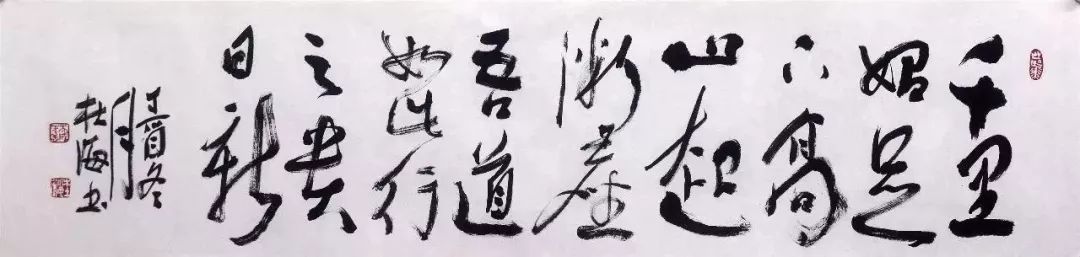 千里
始足
下高
山起
微塵
吾道
如此行
之貴
日新
丁酉冬
月
杜海书